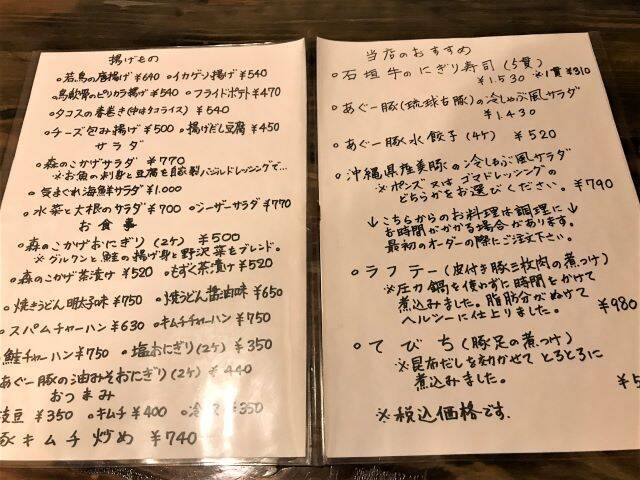 揚げもの
◦若鳥の唐揚げ ¥640 ◦イカゲソ揚げ ¥540
◦鳥軟骨のピリカラ揚げ ¥540 ◦フライドポテト ¥470
◦タコスの春巻き(中味タコライス) ¥540
◦チーズ包み揚げ ¥500 ◦揚げだし豆腐 ¥450
サラダ
◦森のこかげサラダ ¥770
※お魚の刺身と豆腐を自家製バジルドレッシングで…
◦気まぐれ海鮮サラダ ¥1.000
◦水菜と大根のサラダ ¥700 ◦シーザーサラダ ¥770
お食事
◦森のこかげおにぎり(2ケ) ¥500
※グルクンと鮭の揚げ身と野沢菜をブレンド。
◦森のこかげ茶漬け ¥520 ◦もずく茶漬け ¥520
◦焼きうどん明太子味 ¥750 ◦焼うどん醤油味 ¥650
◦スパムチャーハン ¥630 ◦キムチチャーハン ¥750
鮭チャーハン ¥750 ◦塩おにぎり(2ケ) ¥350
あぐー豚の油みそおにぎり(2ケ) ¥440
おつまみ
枝豆 ¥350 ◦キムチ ¥400 ◦冷 ¥350
豚キムチ炒め ¥740
当店のおすすめ
◦石垣牛のにぎり寿司(5貫)
¥1.530 ※1貫¥310
◦あぐー豚(琉球古豚)の冷しゃぶ風サラダ
¥1.430
◦あぐー豚水餃子(4ケ) ¥520
◦沖縄県産美豚の冷しゃぶ風サラダ
※ポンズ又はゴマドレッシングの
どちらかをお選びください。 ¥790
↓こちらからのお料理は調理に↓
お時間がかかる場合があります。
最初のオーダーの際にご注文下さい。
◦ラフテー(皮付き豚三枚肉の煮つけ)
※圧力鍋を使わずに時間をかけて
煮込みました。脂肪分がぬけて
ヘルシーに仕上りました。 ¥980
◦てびち(豚足の煮つけ)
※昆布だしを効かせてとろとろに
煮込みました。 ¥5
※税込価格です.